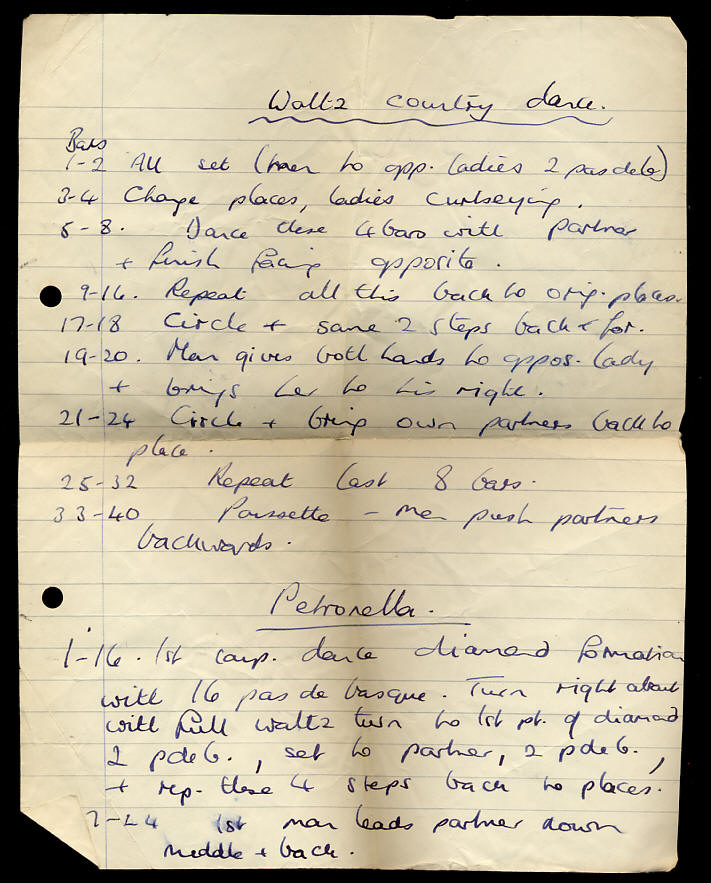 Waltz country dance.
Bars
1-2 All set (men to opp. ladies 2 pas de b)
3-4 Change places, ladies curtseying.
5-8. Dance these 4 bars with partner
+ finish facing opposite.
9-16. Repeat all this back to orig. places.
17-18 Circle + same 2 steps back + for.
19-20. Man gives both hands to oppos. lady
+ brings her to his right.
21-24 Circle + bring own partners back to
place.
25-32 Repeat last 8 bars.
33-40 Poussette - men push partners
backwards.
Petronella.
1-16. 1st coup. dance diamond formation
with 16 pas de basque. Turn right about
with full waltz turn to 1st pt. of diamond
2 p de b., set to partner, 2 p de b.,
+ rep. these 4 steps back to places.
-24 1st man leads partner down
middle + back.